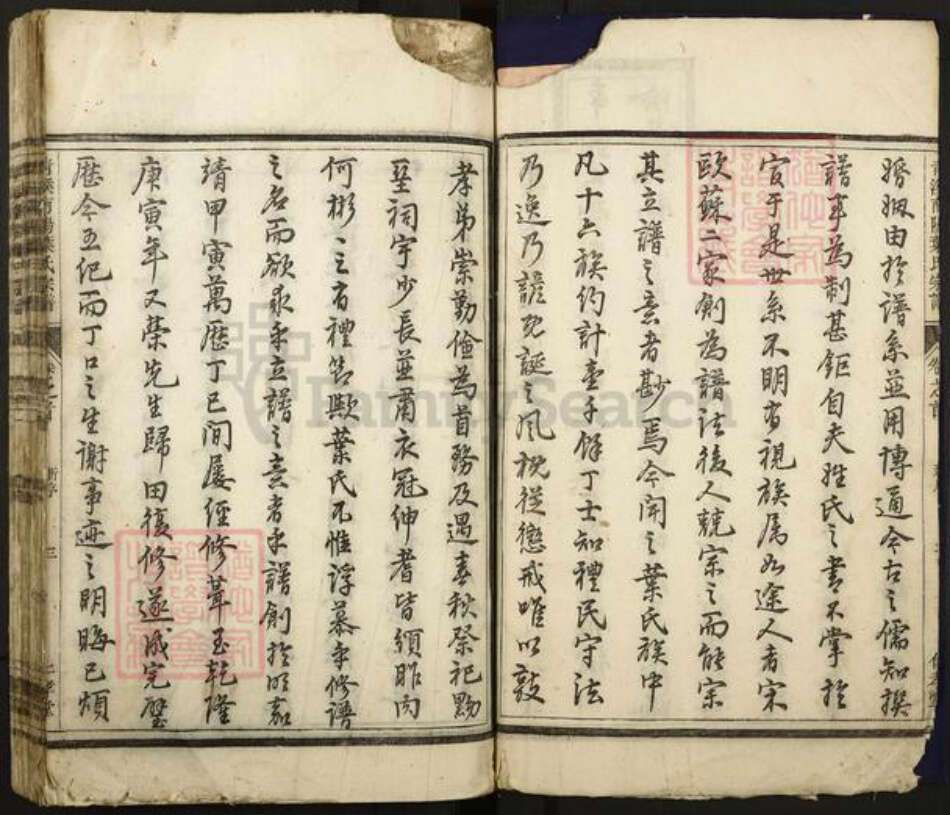 婚姻由於譜系並用博通今古之儒知撰
譜事為制甚鉅自夫姓氏之書不掌於
官于是世系不明有視族属如途人者宋
歐蘇二家創為譜法後人競宗之而能宗
其立譜之意者尠焉今聞之葉氏族中
凡十六族約計壹千餘丁士知禮民守法
乃逸乃諺既誕之風視從懲戒唯以敦
孝弟崇勤儉為首務及遇春秋祭祀黝
堊祠宇少長並肅衣冠紳耆皆頒胙肉
何彬之有禮若歟葉氏不惟浮慕乎修譜
之名而欲求乎立譜之意者乎譜創於明嘉
靖甲寅萬歷丁巳間屢經修葺至乾隆
庚寅年又榮先生歸田後修遂成完璧
歷今五紀而丁口之生謝事迹之明晦已煩
南陽葉氏宗譜
卷之首
新序
三
FamilySearch